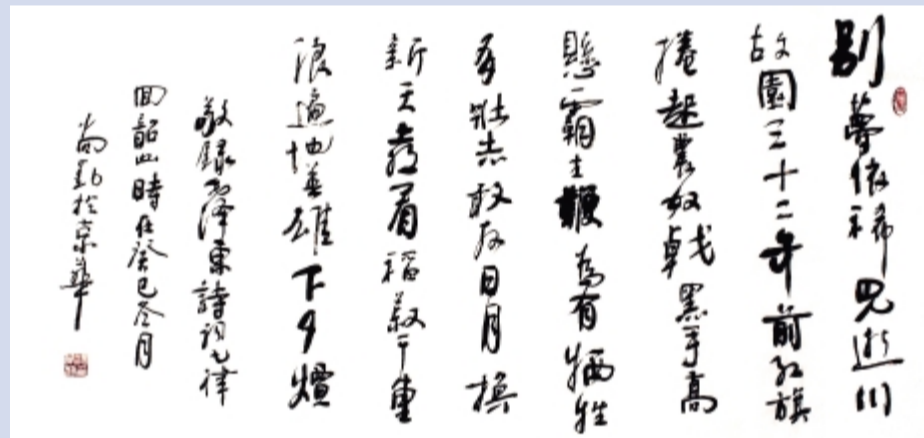 别夢依稀咒逝川
故園三十二年前红旗
捲起農奴戟黑手高
懸霸主鞭為有牺牲
多壯志敢教日月换
新天喜看稻菽千重
浪遍地英雄下夕煙
敬録毛澤東詩词七律
回韶山時在癸巳冬月
於京華